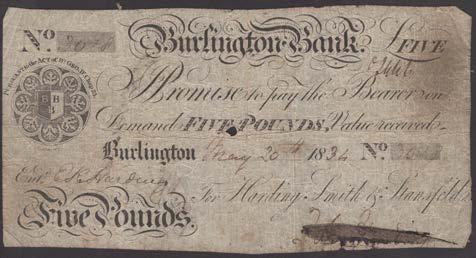 No Burlington Bank. £FIVE
PURSUANT to the ACT of
I Promise to pay the Bearer on
Demand FIVE POUNDS, Value received
Burlington May 20th 1834 No
Entd Harding For Harding Smith & Stansfeld
Five Pounds.